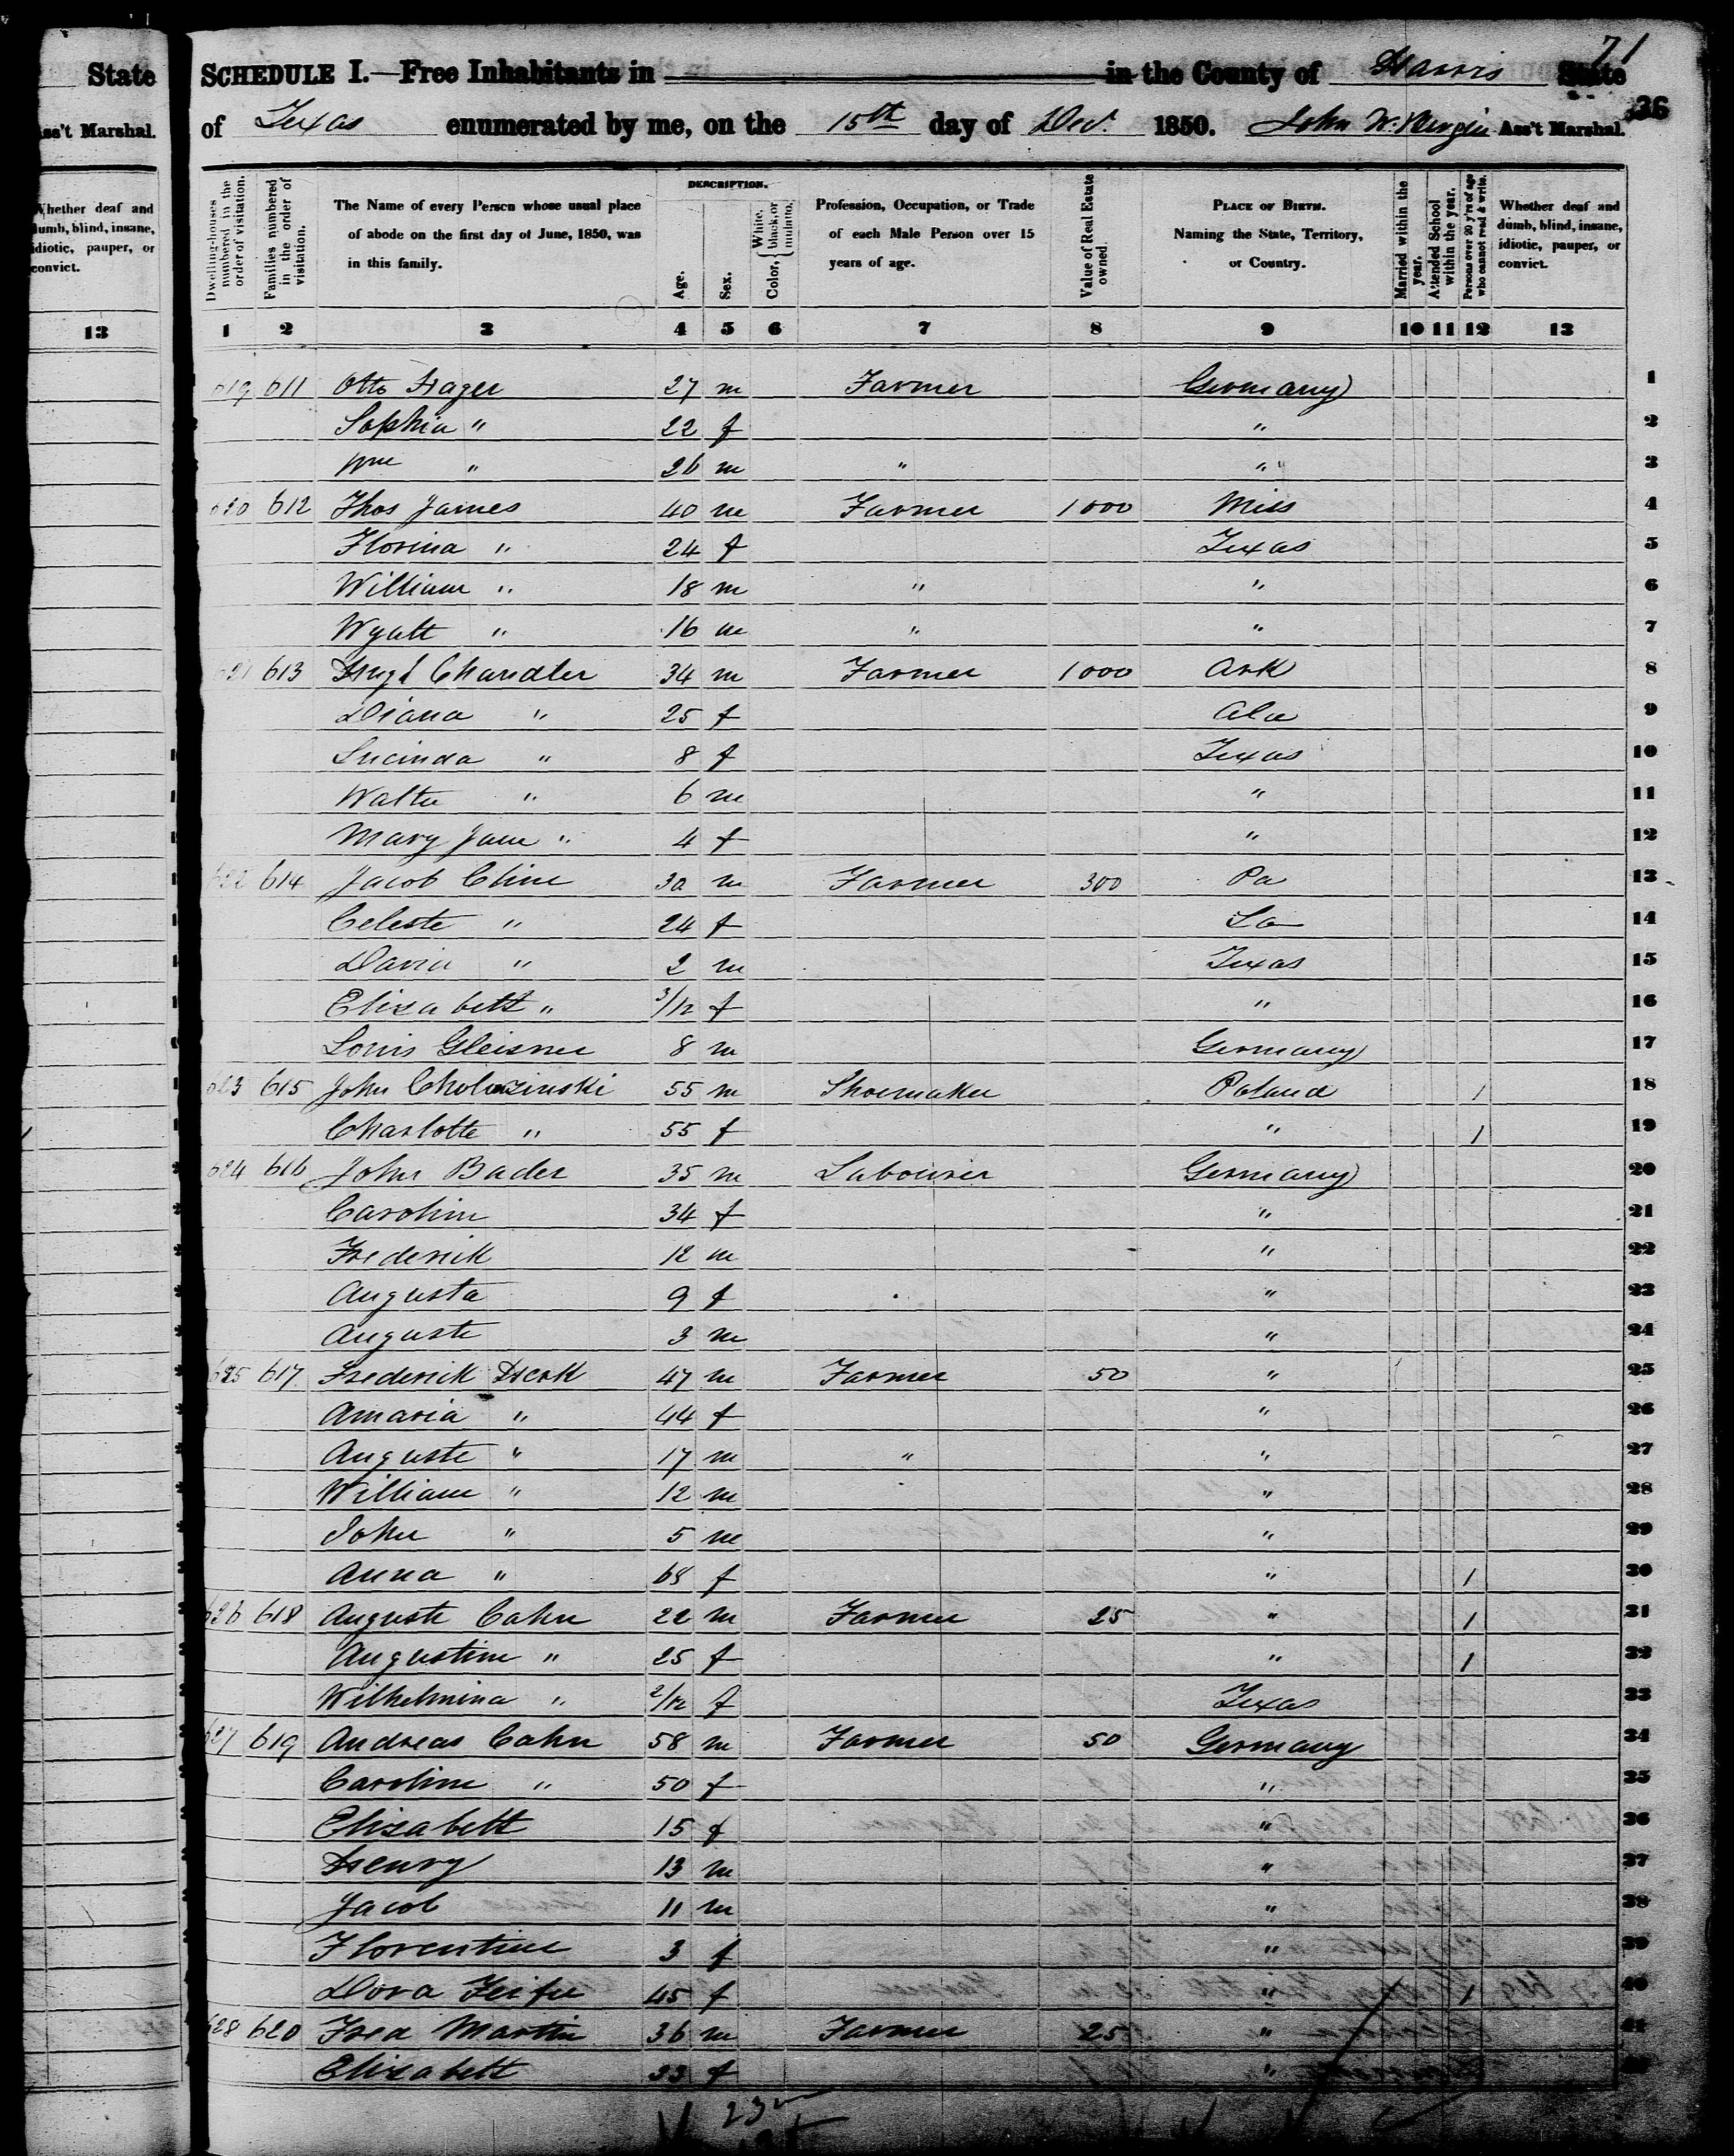 71
State SCHEDULE I.—Free Inhabitants in in the County of Harris State
36
Ass't Marshal. of Texas enumerated by me, on the 15th day of Dec. 1850. John W. Ass't Marshal.
Whether deaf and dumb, blind, insane, idiotic, pauper, or convict.
13
Dwelling-houses numbered in the order of visitation.
Families numbered in the order of visitation.
The Name of every Person whose usual place of abode on the first day of June, 1850, was in this family.
DESCRIPTION.
Age.
Sex.
Color, White, black, or mulatto.
Profession, Occupation, or Trade of each Male Person over 15 years of age.
Value of Real Estate owned.
PLACE OF BIRTH. Naming the State, Territory, or Country.
Married within the year.
Attended School within the year.
Persons over 20 y'rs of age who cannot read & write.
Whether deaf and dumb, blind, insane, idiotic, pauper, or convict.
1 2 3 4 5 6 7 8 9 10 11 12 13
619 611 Otto Hager 27 m Farmer Germany 1
Sophia " 22 f " 2
Wm " 26 m " " 3
620 612 Thos James 40 m Farmer 1000 Miss 4
Florina " 24 f Texas 5
William " 18 m " " 6
Wyatt " 16 m " " 7
621 613 Hugh Chandler 34 m Farmer 1000 Ark 8
Diana " 25 f Ala 9
Lucinda " 8 f Texas 10
Walter " 6 m " 11
Mary Jane " 4 f " 12
622 614 Jacob Cline 30 m Farmer 300 Pa 13
Celeste " 24 f La 14
David " 2 m Texas 15
Elizabett " 3/12 f " 16
Louis Gleisner 8 m Germany 17
623 615 John 55 m Shoemaker Poland 1 18
Charlotte " 55 f " 1 19
624 616 John Bader 35 m Labourer Germany 20
Caroline 34 f " 21
Frederick 12 m " 22
Augusta 9 f " 23
Auguste 3 m " 24
625 617 Frederick Herk 47 m Farmer 50 " 25
Amaria " 44 f " 26
Auguste " 17 m " " 27
William " 12 m " 28
John " 5 m " 29
Anna " 68 f " 1 30
626 618 Auguste Cahn 22 m Farmer 25 " 1 31
Augustine " 25 f " 1 32
Wilhelmina " 2/12 f Texas 33
627 619 Andreas Cahn 58 m Farmer 50 Germany 34
Caroline " 50 f " 35
Elizabett 15 f " 36
Henry 13 m " 37
Jacob 11 m " 38
Florentine 3 f " 39
Dora 45 f " 1 40
628 620 Fred Martin 36 m Farmer 25 " 41
Elizabett 33 f " 42
23